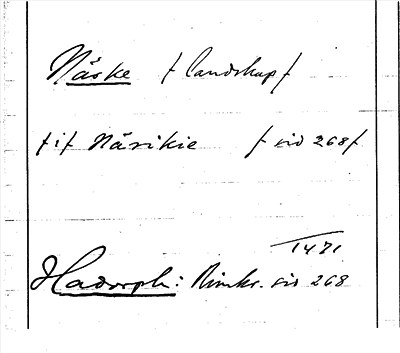 Näske /landskap/
/i/ Närikie /sid 268/
1471
Hadorph: Rimkr. sid 268